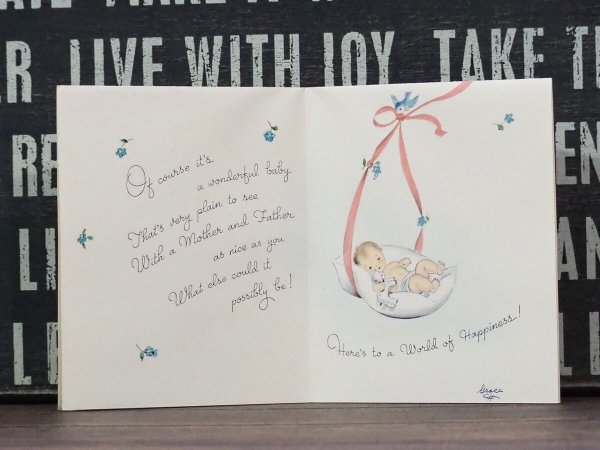 LIVE WITH JOY TAKE
Of course it's
a wonderful baby
That's very plain to see
With a Mother and Father
as nice as you
What else could it
possibly be!
Here's to a World of Happiness!
Grace